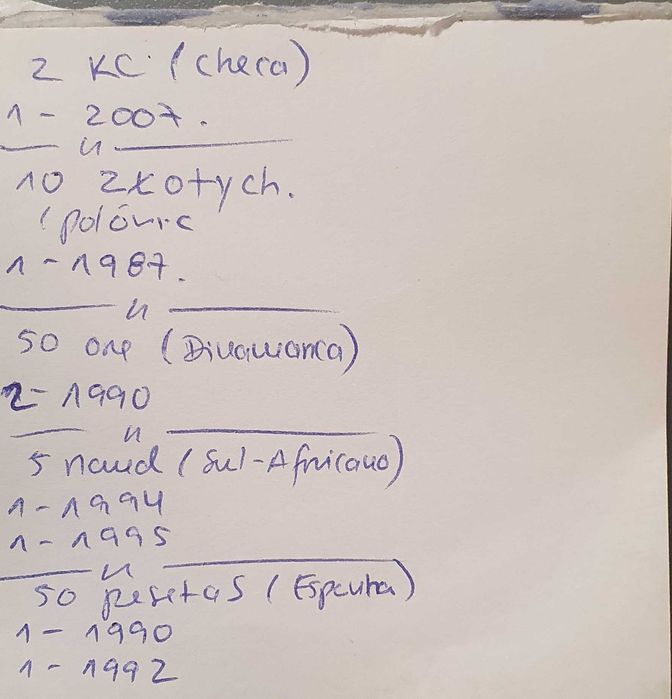 2 KC (checa)
1 - 2007.
— " —
10 zkotych.
(polónic
1 - 1987.
— " —
50 ore (Dinamarca)
2 - 1990
— " —
5 rand (Sul-Africano)
1 - 1994
1 - 1995
— " —
50 pesetas (Espanha)
1 - 1990
1 - 1992